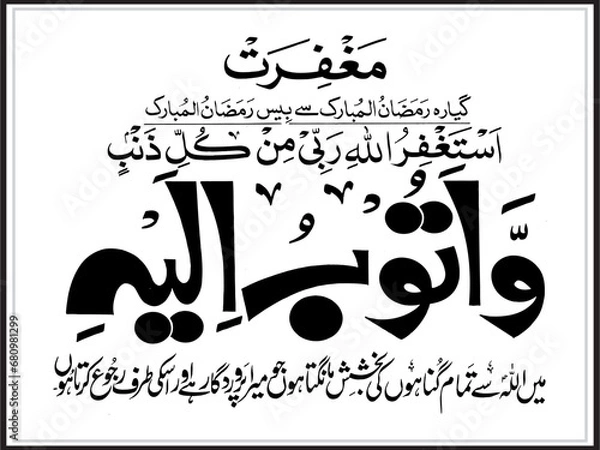 مَغْفِرَتْ
گیارہ رَمَضَانُ المُبارک سے بِیس رَمَضَانُ المُبارک
اَسْتَغْفِرُ اللهَ رَبِّیْ مِنْ کُلِّ ذَنْبٍ
وَّاَتُوْبُ اِلَیْهِ
میں اللہ سے تمام گُناہوں کی بخشِش مانگتا ہوں جو میرا پَروَردگار ہے اور اسکی طرف رجُوع کرتا ہوں
Adobe Stock | #680981299